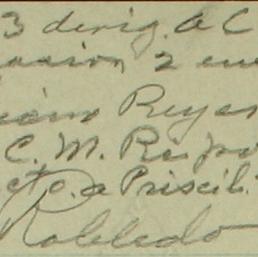 3 derig. a C
asion, 2 en
Reyes
C. M. Re
etc. a Priscil
Robledo